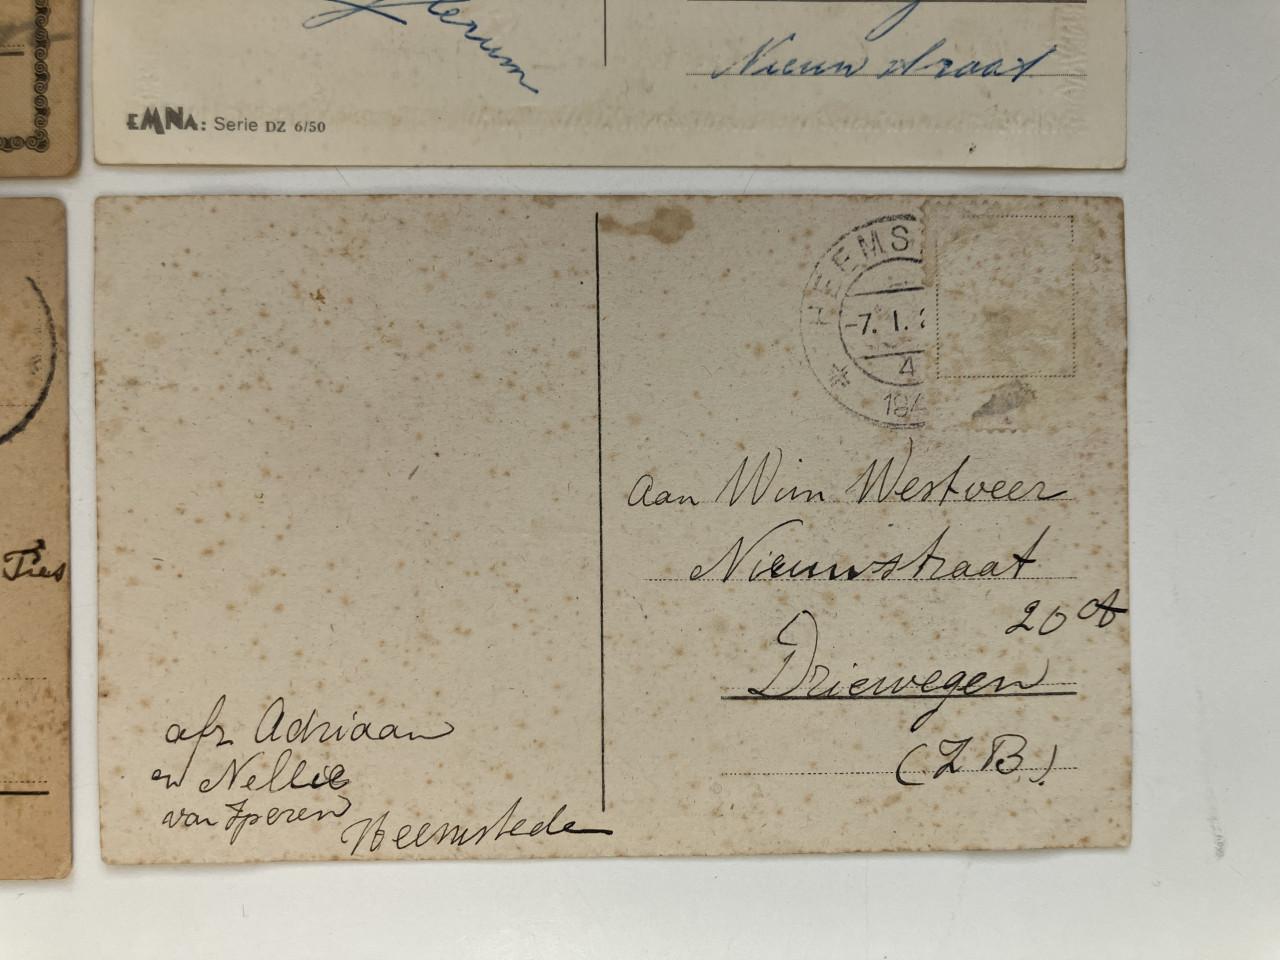 Nieuwstraat
EMNA: Serie DZ 6/50
HEEMS
-7. 1.
4
194
aan Wim Westveer
Nieuwstraat
20
Driewegen
(Z B)
afz Adriaan
en Nellie
van Iperen
Heemstede
Ties